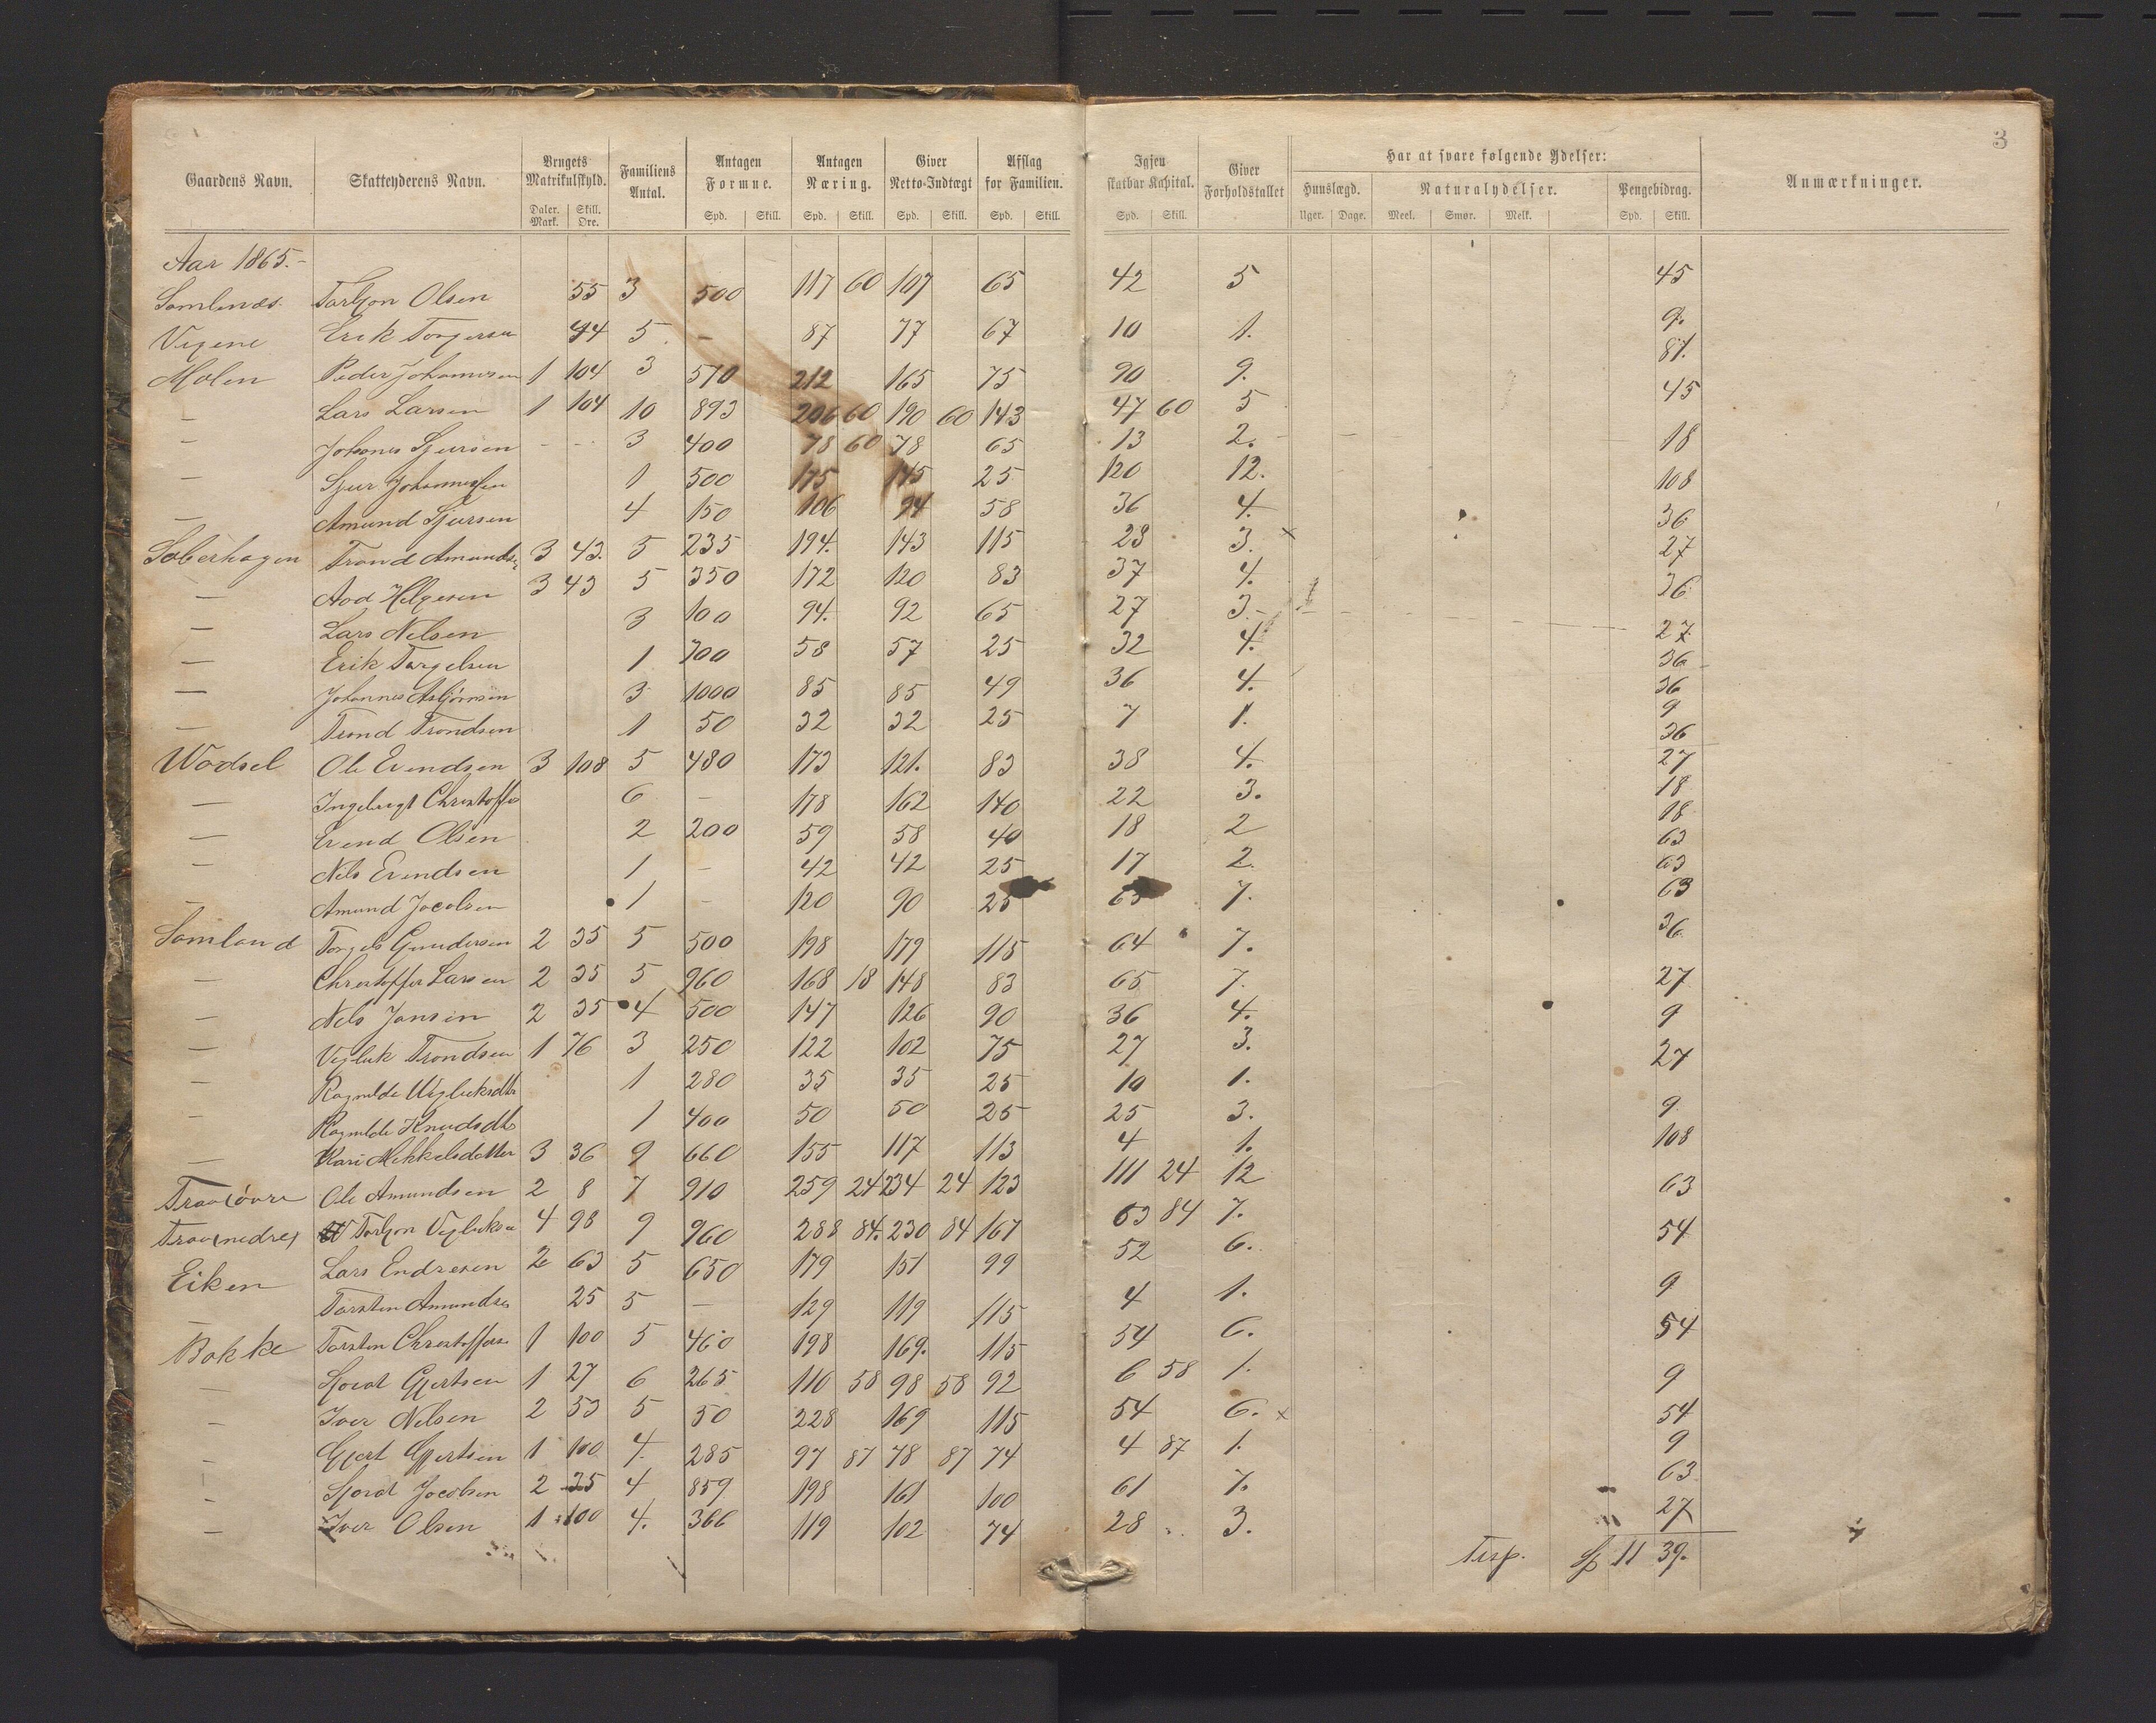 3
Gaardens Navn. Skatteyderens Navn. Brugets Matrikulskyld. Familiens Antal. Antagen Formue. Antagen Næring. Giver Netto-Indtægt Afslag for Familien. Igjen skatbar Kapital. Giver Forholdstallet Har at svare følgende Ydelser: Anmærkninger.
Huuslægd. Naturalydelser. Pengebidrag.
Daler. Mark. Skill. Ore. Spd. Skill. Spd. Skill. Spd. Skill. Spd. Skill. Spd. Skill. Uger. Dage. Meel. Smør. Melk. Spd. Skill.
Aar 1865.-
Torkjon Olsen 55 3 500 117 60 107 65 42 5 45
Vigene Erik Torgersen 44 5 - 87 77 67 10 1. 9.
Molen Peder Johannesen 1 104 3 570 212 165 75 90 9. 81.
- Lars Larsen 1 104 10 893 206 60 190 60 143 47 60 5 45
- Johanes Sjursen - - 3 400 78 60 78 65 13 2. 18
- Sjur Johannessen 1 500 175 145 25 120 12. 108
- Amund Sjursen 4 150 106 94 58 36 4. 36
Soberhagen Trond Amunds 3 43. 5 235 194. 143 115 28 3. x 27
- Aad Helgesen 3 43 5 350 172 120 83 37 4. 36
- Lars Nilsen 3 100 94. 92 65 27 3. 27
- Erik Torgelsen 1 700 58 57 25 32 4. 36
- Johannes Asbjörnsen 3 1000 85 85 49 36 4. 36
- Trond Trondsen 1 50 32 32 25 7 1. 9
Wodsel Ole Evendsen 3 108 5 480 173 121. 83 38 4. 36
- Ingebrigt Christoffs 6 - 178 162 140 22 3. 27
- Evend Olsen 2 200 59 58 40 18 2 18
- Nils Evendsen 1 - 42 42 25 17 2. 18
- Amund Jacobsen 1 - 120 90 25 65 7. 63
Somland Torgils Gundersen 2 35 5 500 198 179 115 64 7. 63
- Christoffer Larsen 2 35 5 960 168 18 148 83 65 7. 63
- Nils Jansen 2 35 4 500 147 126 90 36 4. 36
- Vigluk Trondsen 1 76 3 250 122 102 75 27 3. 27
- Ragnilde Wiglueksdtr 1 280 35 35 25 10 1. 9
- Ragnilde Knudsdtr 1 400 50 50 25 25 3. 27
- Kari Mikkelsdatter 3 36 9 660 155 117 113 4 1. 9
Trav(övre Ole Amundsen 2 8 7 910 259 24 234 24 123 111 24 12 108
Trav(nedre) Torkjon Vigluksen 4 98 9 960 288 84. 230 84 167 63 84 7. 63
Eiken Lars Endresen 2 63 5 650 179 151 99 52 6. 54
- Torsten Amundsen 25 5 - 129 119 115 4 1. 9
Bakke Torsten Christoffers 1 100 5 460 198 169. 115 54 6. 54
- Gjertsen 1 27 6 265 110 58 98 58 92 6 58 1. 9
- Iver Nilsen 2 53 5 50 228 169 115 54 6. x 54
- Gjert Gjertsen 1 100 4. 285 97 87 78 87 74 4 87 1. 9
- Jacobsen 2 35 4 859 198 161 100 61 7. 63
- Iver Olsen 1 100 4. 366 119 102 74 28 3. 27
11 39.